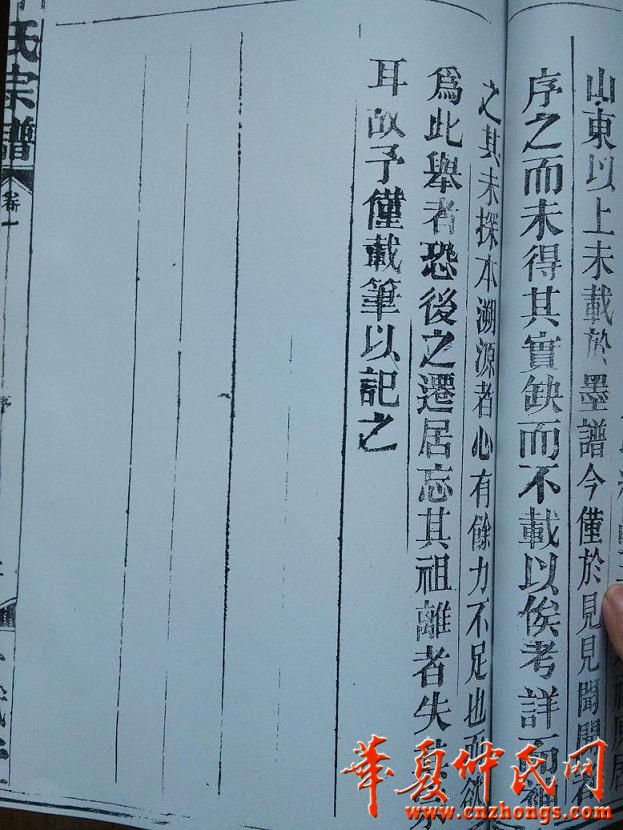 山東以上未載於墨譜今僅於見見聞聞者
序之而未得其實缺而不載以俟考詳而補
之其未探本溯源者心有餘力不足也而欲
爲此舉者恐後之遷居忘其祖離者失其宗
耳故予僅載筆以記之
氏宗譜
卷一
序
華夏仲氏网
www.cnzhongs.com